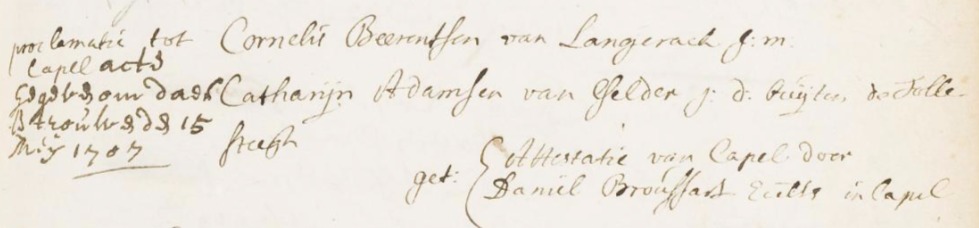 proclamatie tot
Capel acte
Gegeven om daer
B trouwe de 15
Meij 1707
Cornelis Beerentsen van Langerack j: m:
Catharijn Adamsen van Gelder j: d: buijten de Tolle-
steegh
get: Attestatie van Capel door
Daniel Broussart in Capel